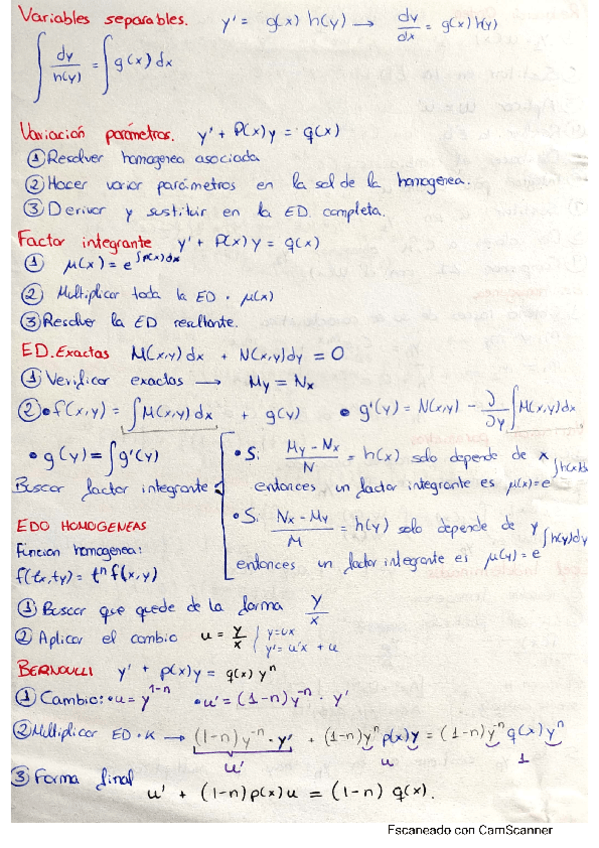 Variables separables. y' = g(x) h(y) → dy/dx = g(x) h(y)
∫ dy/h(y) = ∫ g(x) dx
Variación parámetros. y' + P(x) y = q(x)
① Resolver homogenea asociada
② Hacer variar parámetros en la sol de la homogenea.
③ Derivar y sustituir en la ED. completa.
Factor integrante y' + P(x) y = q(x)
① μ(x) = e^∫P(x)dx
② Multiplicar toda la ED · μ(x)
③ Resolver la ED resultante.
ED. Exactas M(x,y) dx + N(x,y) dy = 0
① Verificar exactas → My = Nx
② • f(x,y) = ∫M(x,y) dx + g(y) • g'(y) = N(x,y) - ∂/∂y ∫M(x,y)dx
• g(y) = ∫g'(y)
Buscar factor integrante
• Si My - Nx / N = h(x) solo depende de x
entonces un factor integrante es μ(x) = e^∫h(x)dx
• Si Nx - My / M = h(y) solo depende de y
entonces un factor integrante es μ(y) = e^∫h(y)dy
EDO HOMOGENEAS
Funcion homogenea:
f(tx,ty) = t^n f(x,y)
① Buscar que quede de la forma y/x
② Aplicar el cambio u = y/x { y=ux
y' = u'x + u
BERNOULLI y' + p(x)y = q(x) y^n
① Cambio: • u = y^1-n • u' = (1-n)y^-n · y'
② Multiplicar ED · K → (1-n)y^-n · y' + (1-n)y^-n p(x)y = (1-n)y^-n q(x)y^n
u' u 1
③ Forma final u' + (1-n)p(x)u = (1-n) q(x).
Escaneado con CamScanner